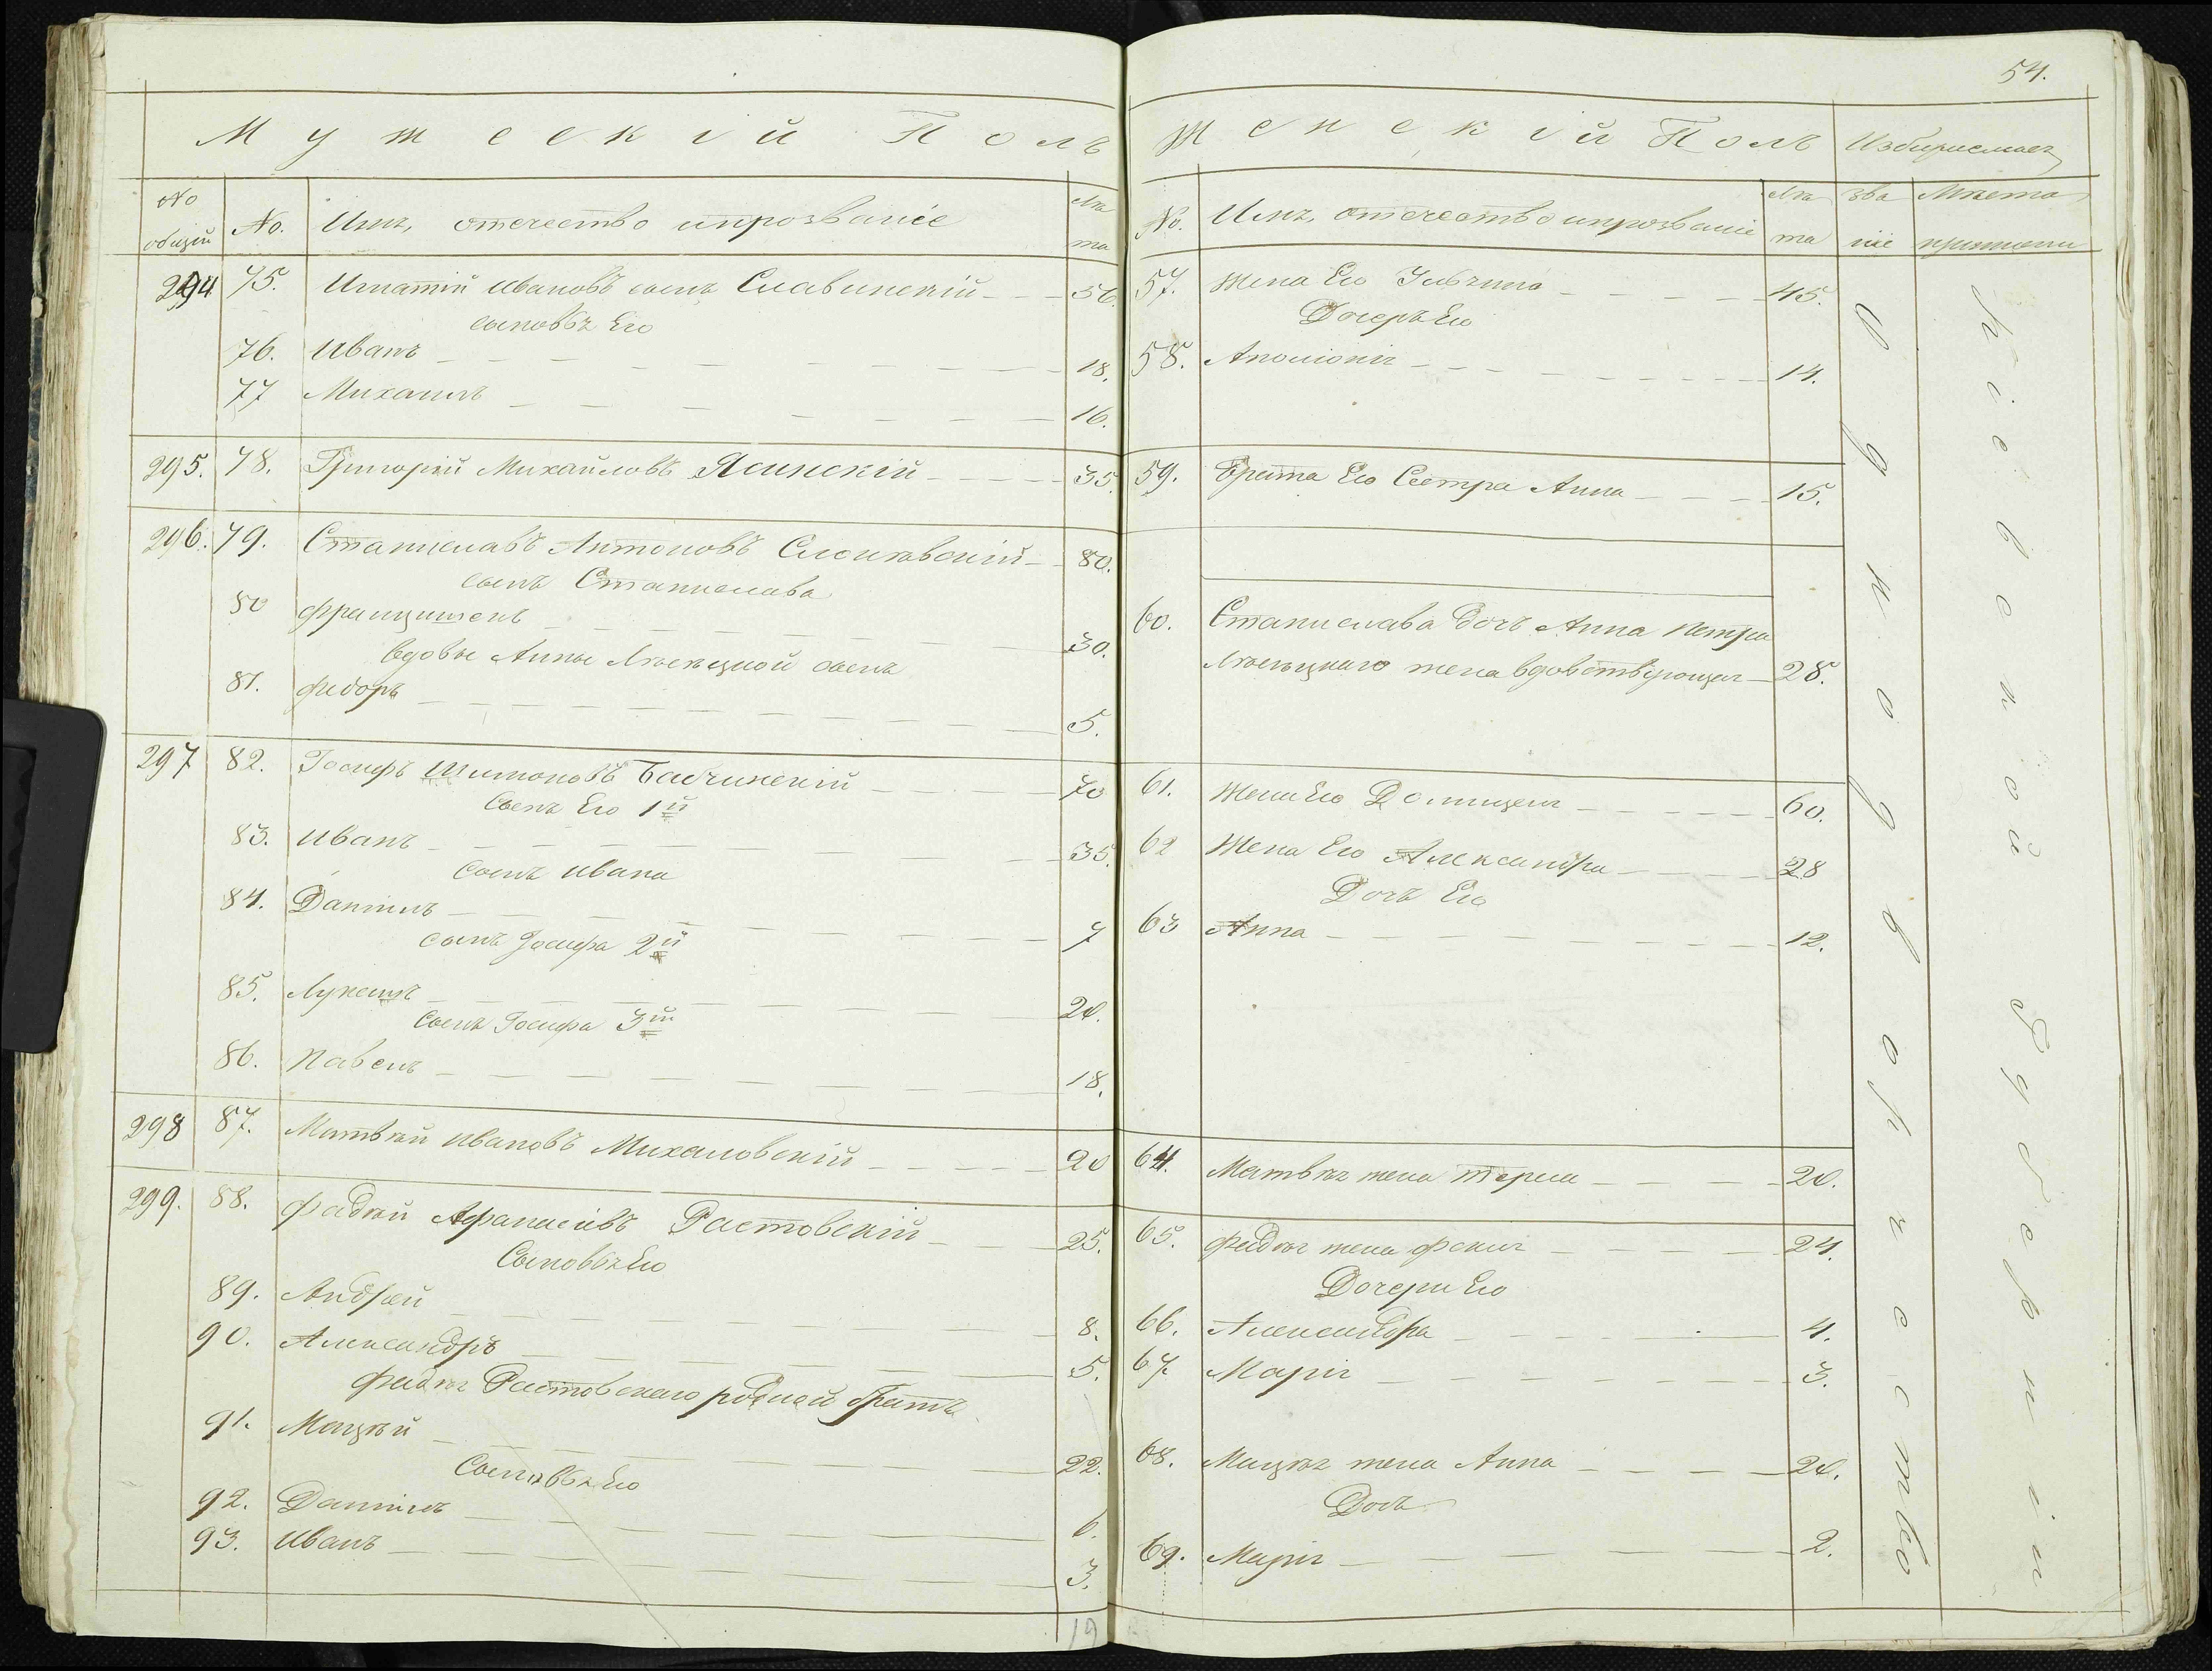 54.
Мужескій Полъ
№ общій
№.
Имя, отечество ипрозваніе
Лѣта
294 75. Игнатій Ивановъ сынъ Славинскій 56.
сыновья Его
76. Иванъ 18.
77 Михаилъ 16.
295. 78. Григорій Михайловъ Ясинскій 35.
296. 79. Станиславъ Антоновъ 80.
сынъ Станислава
80 Францишекъ 30.
вдовы Анны сынъ
81. Федоръ 5.
297 82. Іосифъ Шимоновъ Бабчинскій 70
Сынъ Его 1й
83. Иванъ 35.
Сынъ Ивана
84. Даніилъ 7
сынъ Іосифа 2й
85. Лукашъ 20.
Сынъ Іосифа 3й
86. Павелъ 18.
298 87. Матвѣй Ивановъ Михаловскій 20
299. 88. Фадѣй Афанасіевъ Растовскій 25.
Сыновья Его
89. Андрей 8.
90. Александръ 5.
Фадѣя Растовскаго родной братъ
91. Мацѣй 22.
Сыновья Его
92. Даніилъ 6.
93. Иванъ 3.
19
Женскій Полъ
№.
Имя, отечество ипрозваніе
Лѣта
званіе
Мѣста
57. Жена Его 45.
Дочерь Его
58. Аполонія 14.
59. Брата Его Сестра Анна 15.
60. Станислава дочь Анна Петра
жена вдовствующая 28.
61. Жена Его Домицеля 60.
62 Жена Его Александра 28
Дочь Его
63 Анна 12.
64. Матвѣя жена 20.
65. Фадѣя жена Фекля 24.
Дочери Его
66. Александра 4.
67 Марія 3.
68. Мацѣя жена Анна 20.
Дочь
69. Марія 2.
Однодворчество
Кіевской Губерніи